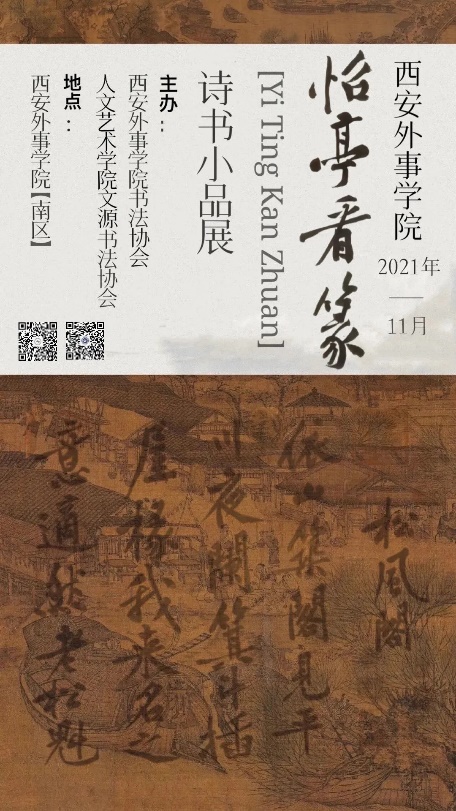 西安外事学院
2021年
11月
怡亭看篆
[Yi Ting Kan Zhuan]
诗书小品展
主办：
西安外事学院书法协会
人文艺术学院文源书法协会
地点：
西安外事学院【南区】
松风阁
依山筑阁见平
川夜阑箕斗插
屋椽我来名之
意适然老松魁